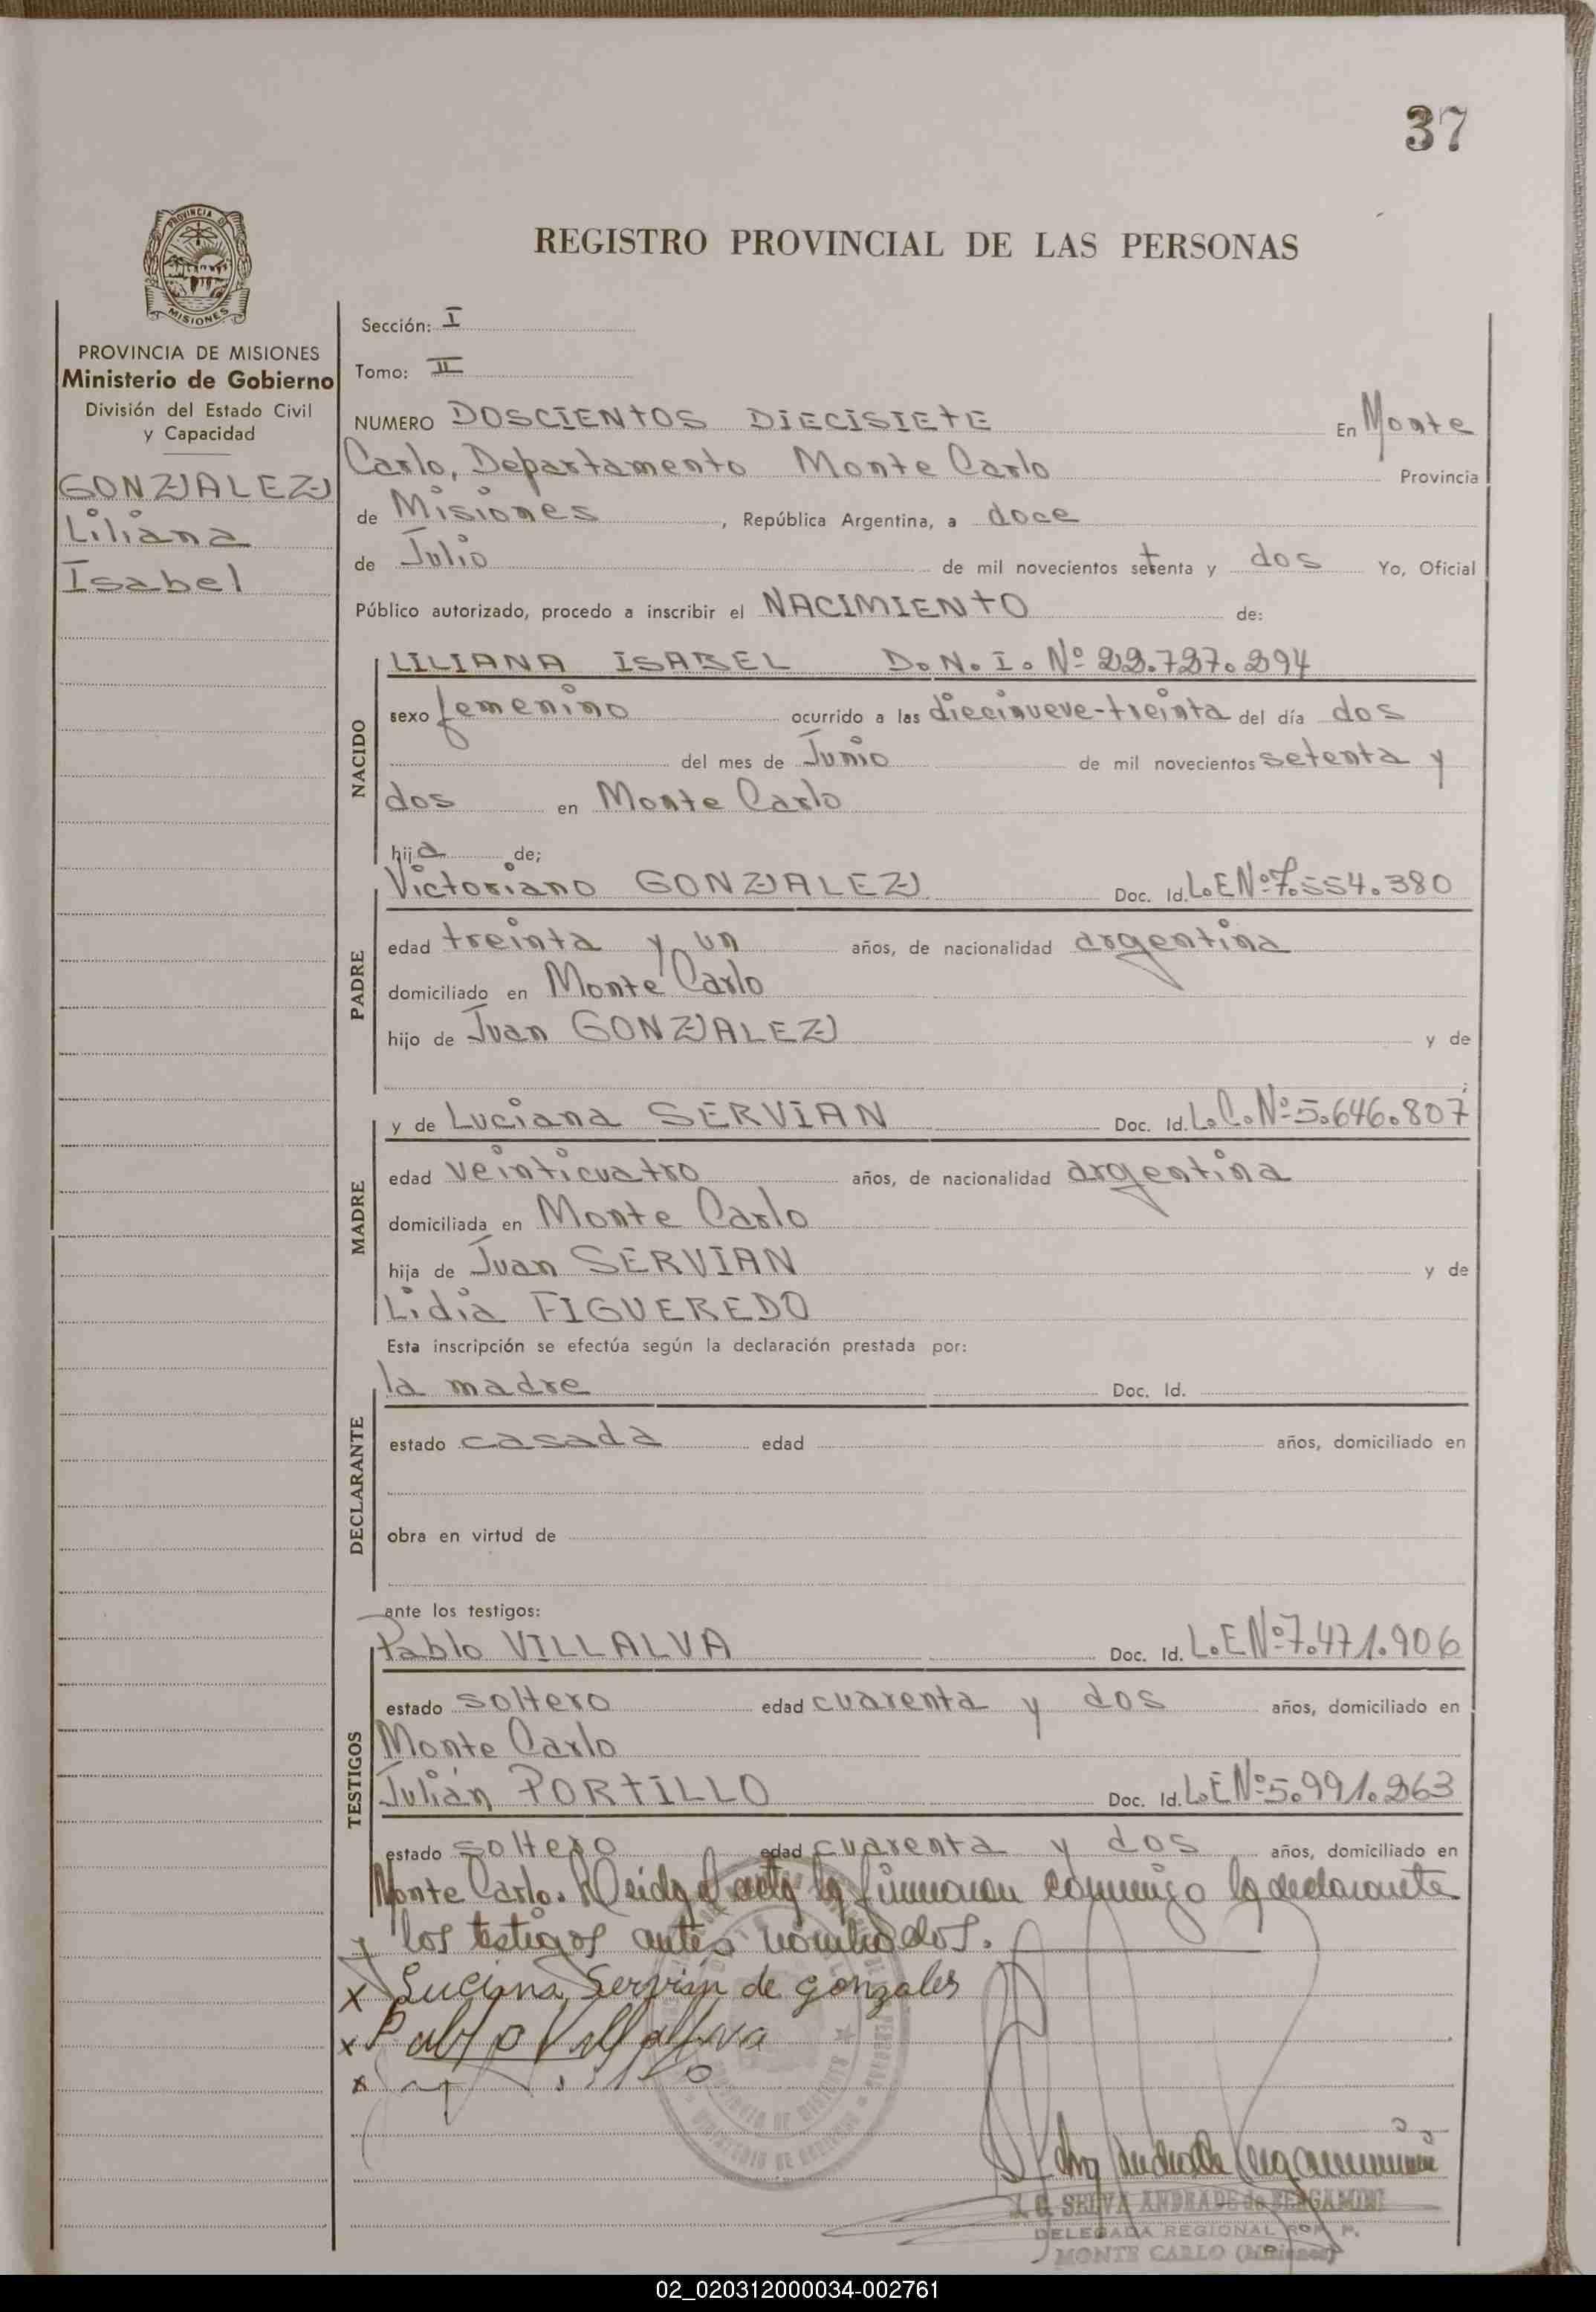 37
PROVINCIA DE
MISIONES
REGISTRO PROVINCIAL DE LAS PERSONAS
PROVINCIA DE MISIONES
Ministerio de Gobierno
División del Estado Civil
y Capacidad
GONZALEZ
Liliana
Isabel
Sección: I
Tomo: II
NUMERO DOSCIENTOS DIECISIETE En Monte
Carlo, Departamento Monte Carlo Provincia
de Misiones, República Argentina, a doce
de Julio de mil novecientos setenta y dos Yo, Oficial
Público autorizado, procedo a inscribir el NACIMIENTO de:
NACIDO
LILIANA ISABEL D.N.I. Nº 22.727.294
sexo femenino ocurrido a las diecinueve-treinta del día dos
del mes de Junio de mil novecientos setenta y
dos en Monte Carlo
hija de;
PADRE
Victoriano GONZALEZ Doc. Id. L.E Nº 7.554.380
edad treinta y un años, de nacionalidad argentina
domiciliado en Monte Carlo
hijo de Juan GONZALEZ y de
MADRE
y de Luciana SERVIAN Doc. Id. L.C. Nº 5.646.807
edad veinticuatro años, de nacionalidad argentina
domiciliada en Monte Carlo
hija de Juan SERVIAN y de
Lidia FIGUEREDO
Esta inscripción se efectúa según la declaración prestada por:
DECLARANTE
la madre Doc. Id.
estado casada edad años, domiciliado en
obra en virtud de
ante los testigos:
TESTIGOS
Pablo VILLALVA Doc. Id. L.E Nº 7.471.906
estado soltero edad cuarenta y dos años, domiciliado en
Monte Carlo
Julián PORTILLO Doc. Id. L.E Nº 5.991.263
estado soltero edad cuarenta y dos años, domiciliado en
Monte Carlo. Leida el acta la firmaron conmigo la declarante
y los testigos antes nombrados.
x Luciana Servián de gonzales
x Pablo Villalva
x
PROVINCIA DE MISIONES
MINISTERIO DE GOBIERNO
SELVA ANDRADE de BERGAMINI
DELEGADA REGIONAL R. P. P.
MONTE CARLO (Misiones)
02_020312000034-002761